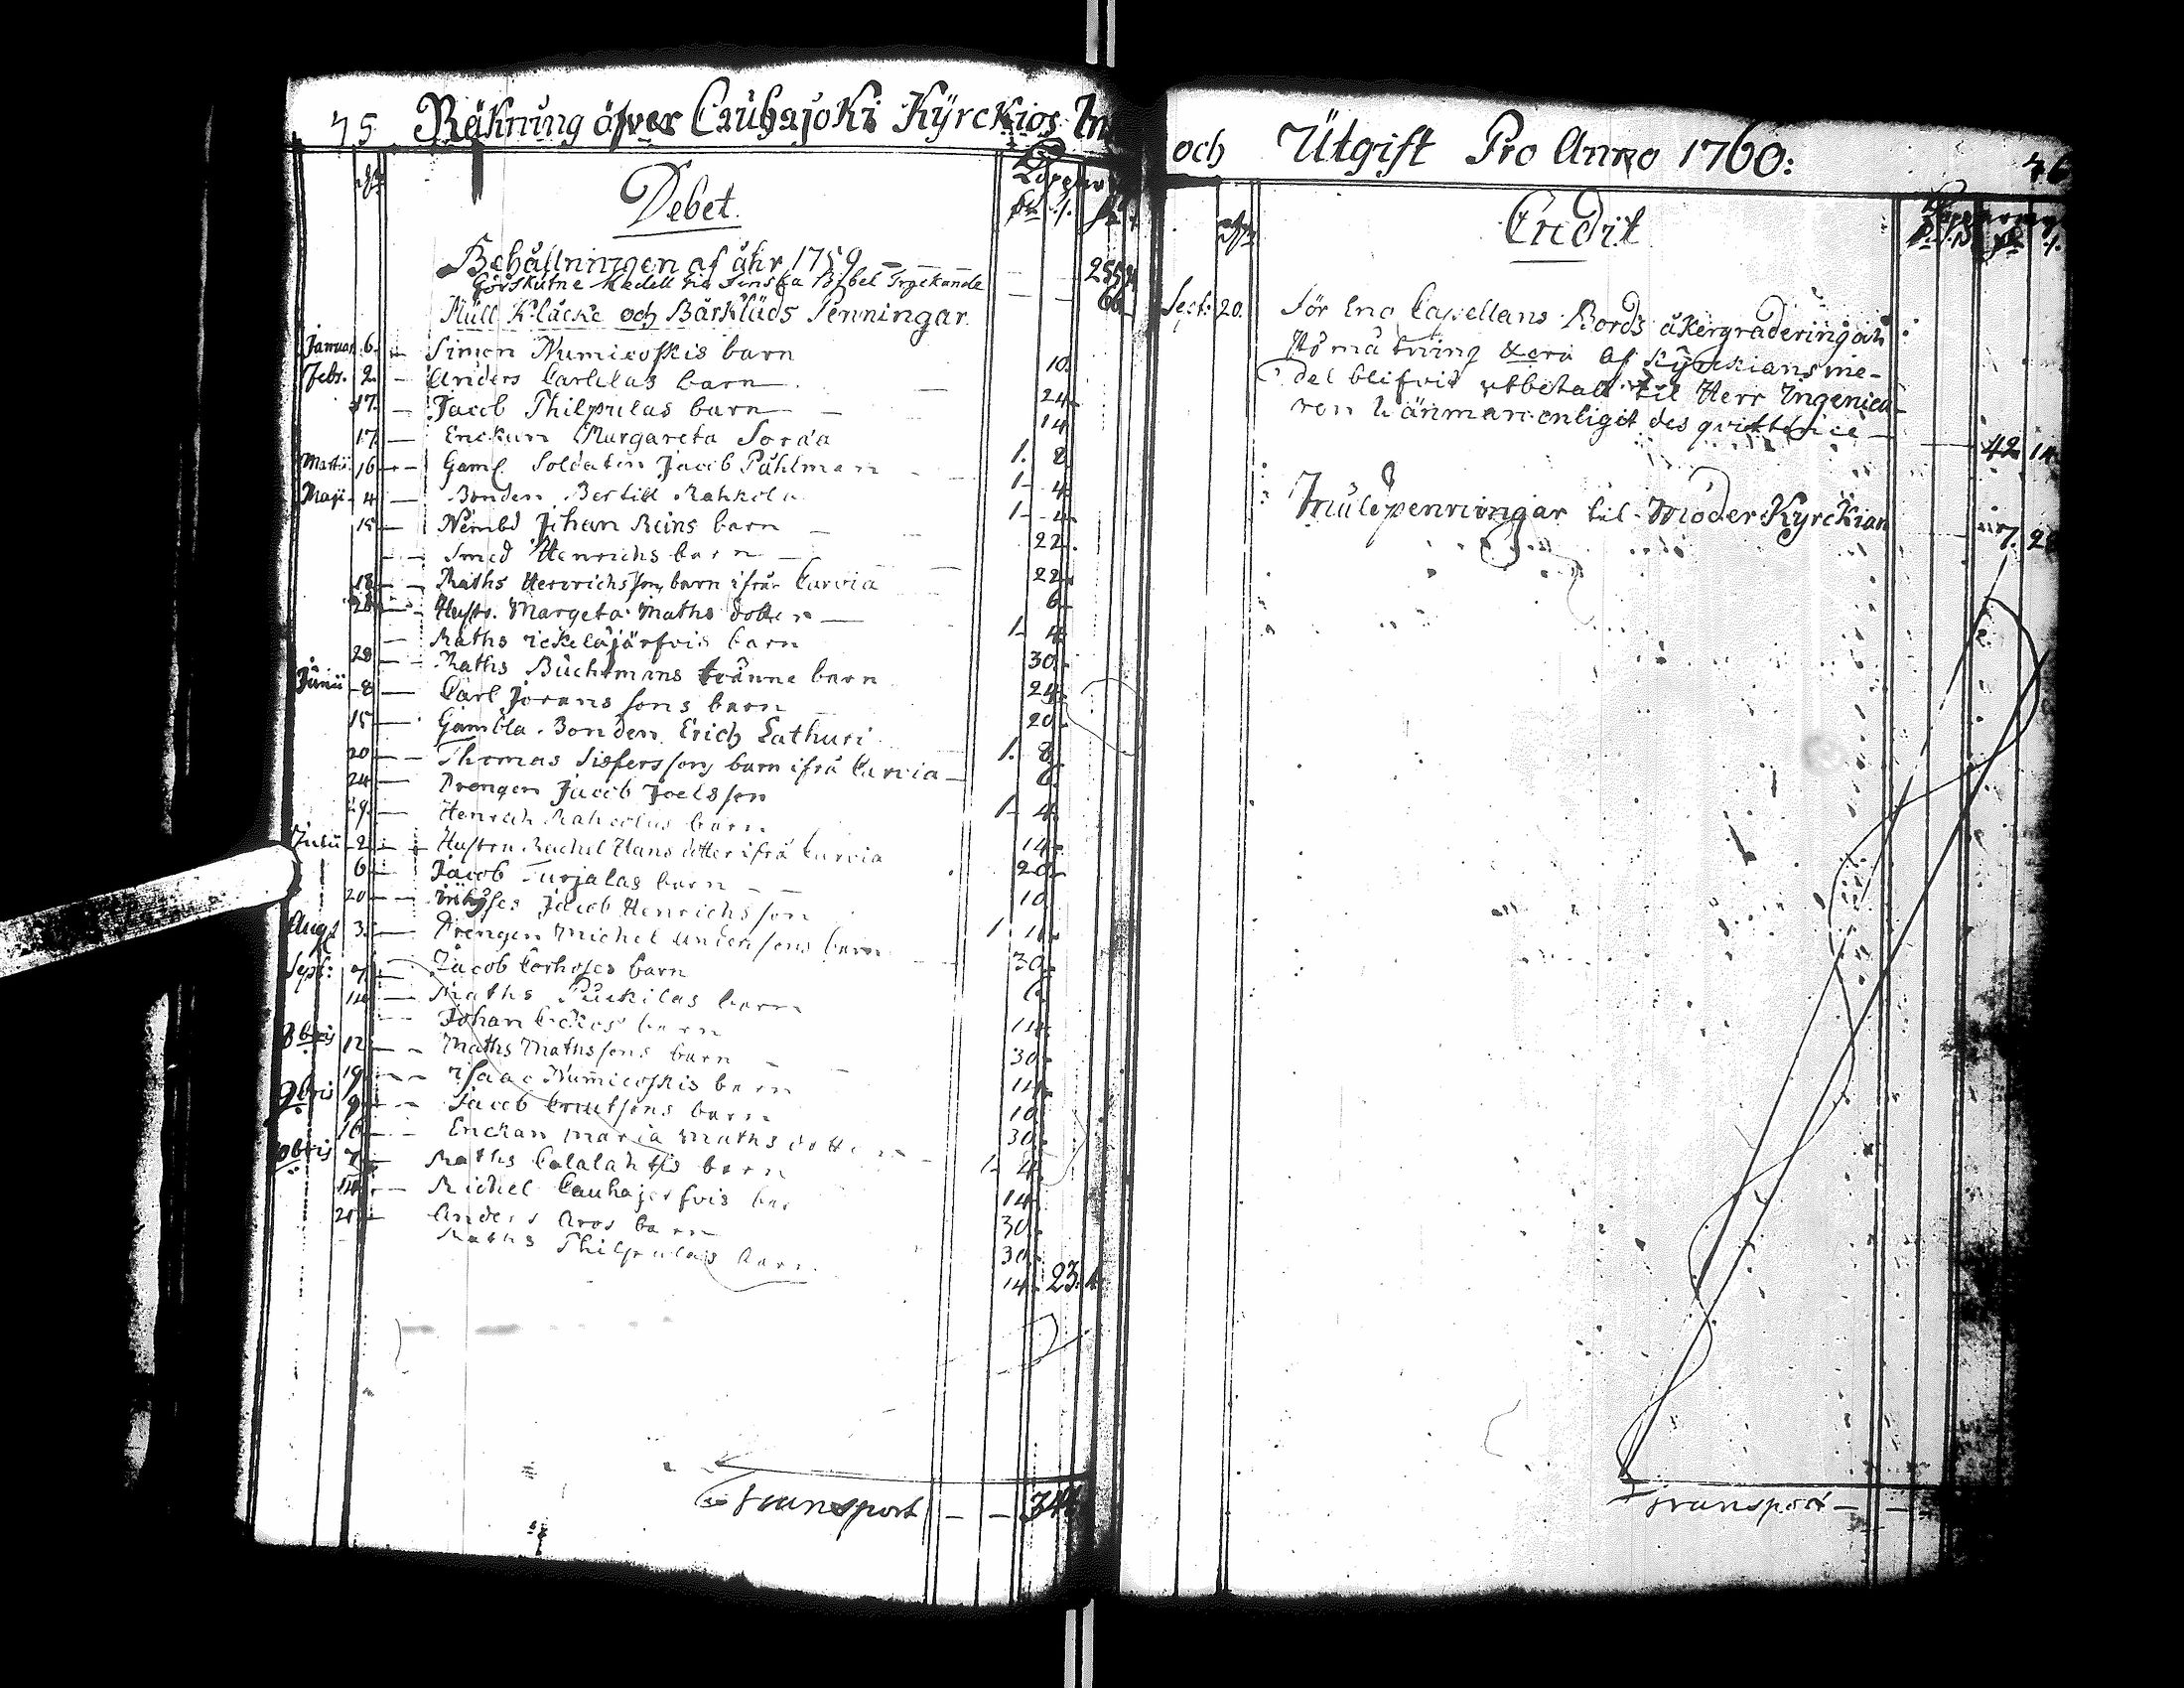 75 Räkning öfver Cauhajoki Kyrckios In
Debet.
Behållningen af åhr 1759 — 255
66
Mull Klåcke och Bårklüds Penningar
Januar. 6. — Simon Numicoskis barn 10.
Febr. 2. — Anders Carlilas barn 24
17. — Jacob Philpulas barn 14
17 — Enckan Margareta Soraa 1. 8
Martii 16 — Gaml. Soldaten Jacob Påhlman 1. 4
Maji 4 — Bonden Bertill Rahkola 1. 4
15 — Nembd Johan Reins barn 22.
— Smed Henrichs barn 22
18 — Maths Henrichsson barn ifrån Carvia 6
26 — Hustr. Margeta Maths dotter 1. 4
— Maths Ickeläjärfvis barn 30
28 — Maths Buchtmans barn 24
Junii 8 — Carl Joransons barn 20
15 — Gambla Bonden Erich Lathuri 1. 8
20 — Thomas Sigfersson barn ifrå Carvia — 6
24 — Drengen Jacob Joelsson 1. 4
29. — Henrich Rahcolas barn 14
Julii 2 — Hustru Rachel Hans dotter ifrå Carvia 20
6 — Jacob Turjalas barn 10
20 — Jacob Henrichsson 1
Aug. 3. — Drengen Michel Andersons barn 30
Sept: 7. — Jacob Corhoses barn 6
14 — Maths Puckilas barn 14
— Johan barn 30
8bris 12 — Maths Mathssons barn 14
19. — Isaac Numicoskis barn 10
9bris 9 — Jacob Cnutsons barn 30
16 — Enckan Maria Maths dotter 1. 4
10bris 7 — Maths Calalahtis barn 14
14 — Michel Cauhajerfvis bar 30
21 — Anders Aros barn 30
— Maths Philpulas barn 14 23.
Transport — — 344
och Utgift Pro Anno 1760: 76
Credit
Sept: 20. För Capellans Bords åkergradering och
mätning af Kyrckians me-
del blifvit utbetalt til Herr Ingenieu-
ren enligit des qvittence — 42 14
penningar til Moder Kyrckian 7. 2
Transport — —